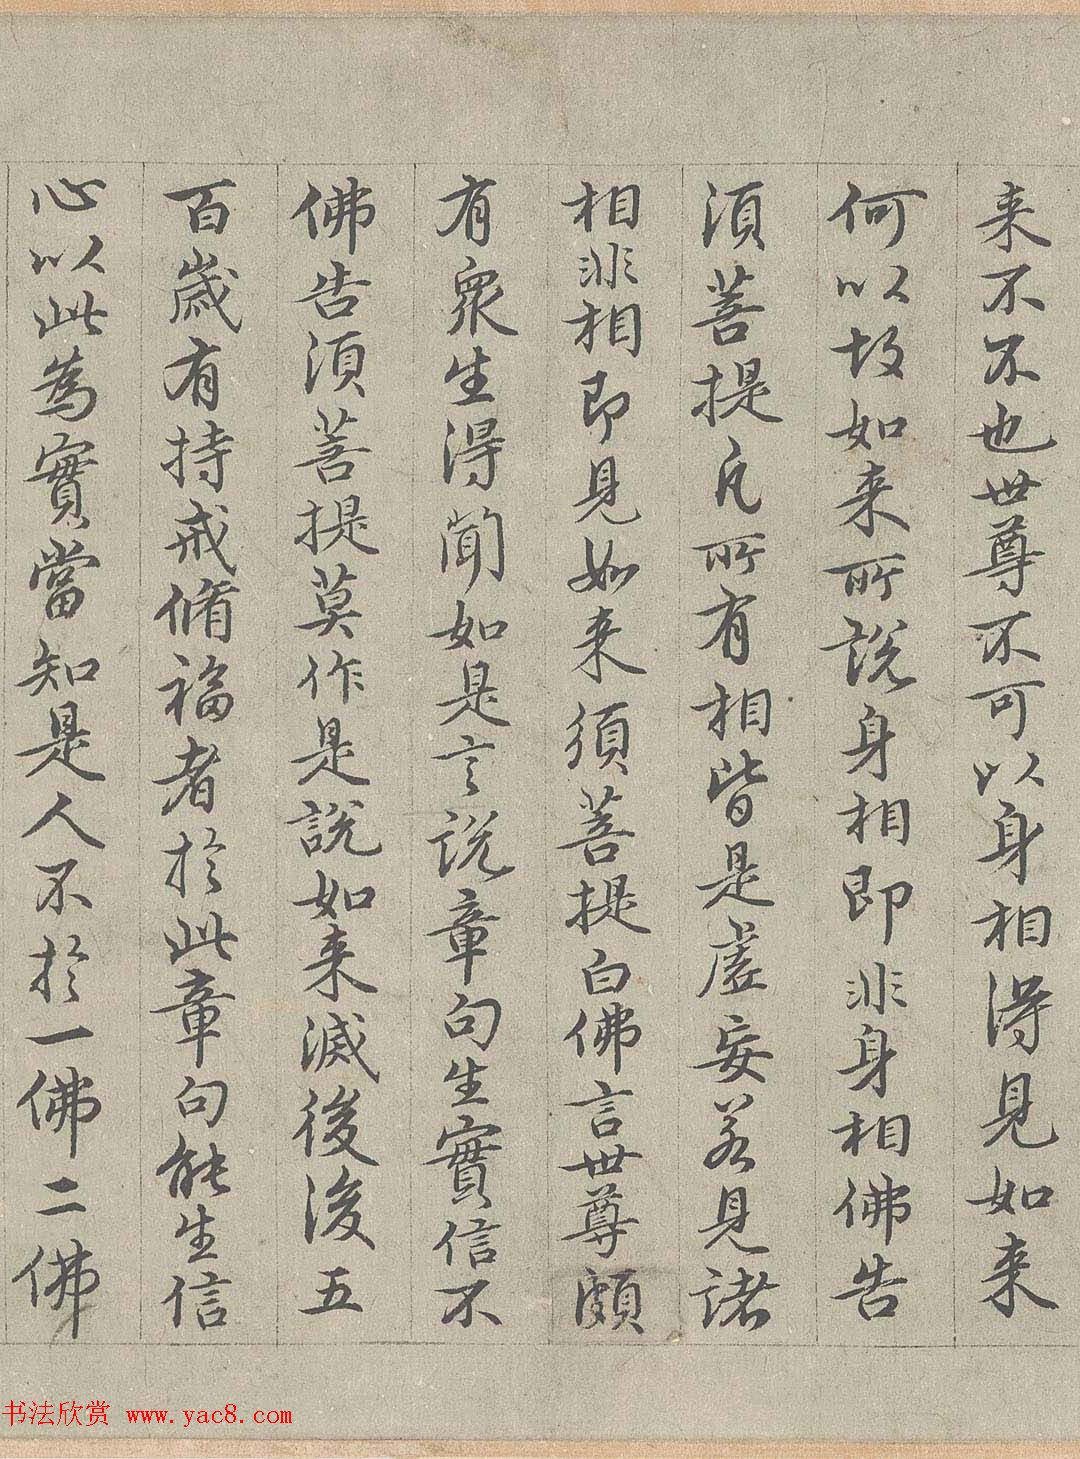 来不不也世尊不可以身相得見如来
何以故如来所說身相即非身相佛告
須菩提凡所有相皆是虛妄若見諸
相非相即見如来須菩提白佛言世尊頗
有眾生得聞如是言說章句生實信不
佛告須菩提莫作是說如来滅後後五
百歲有持戒脩福者於此章句能生信
心以此為實當知是人不於一佛二佛
书法欣赏 www.yac8.com